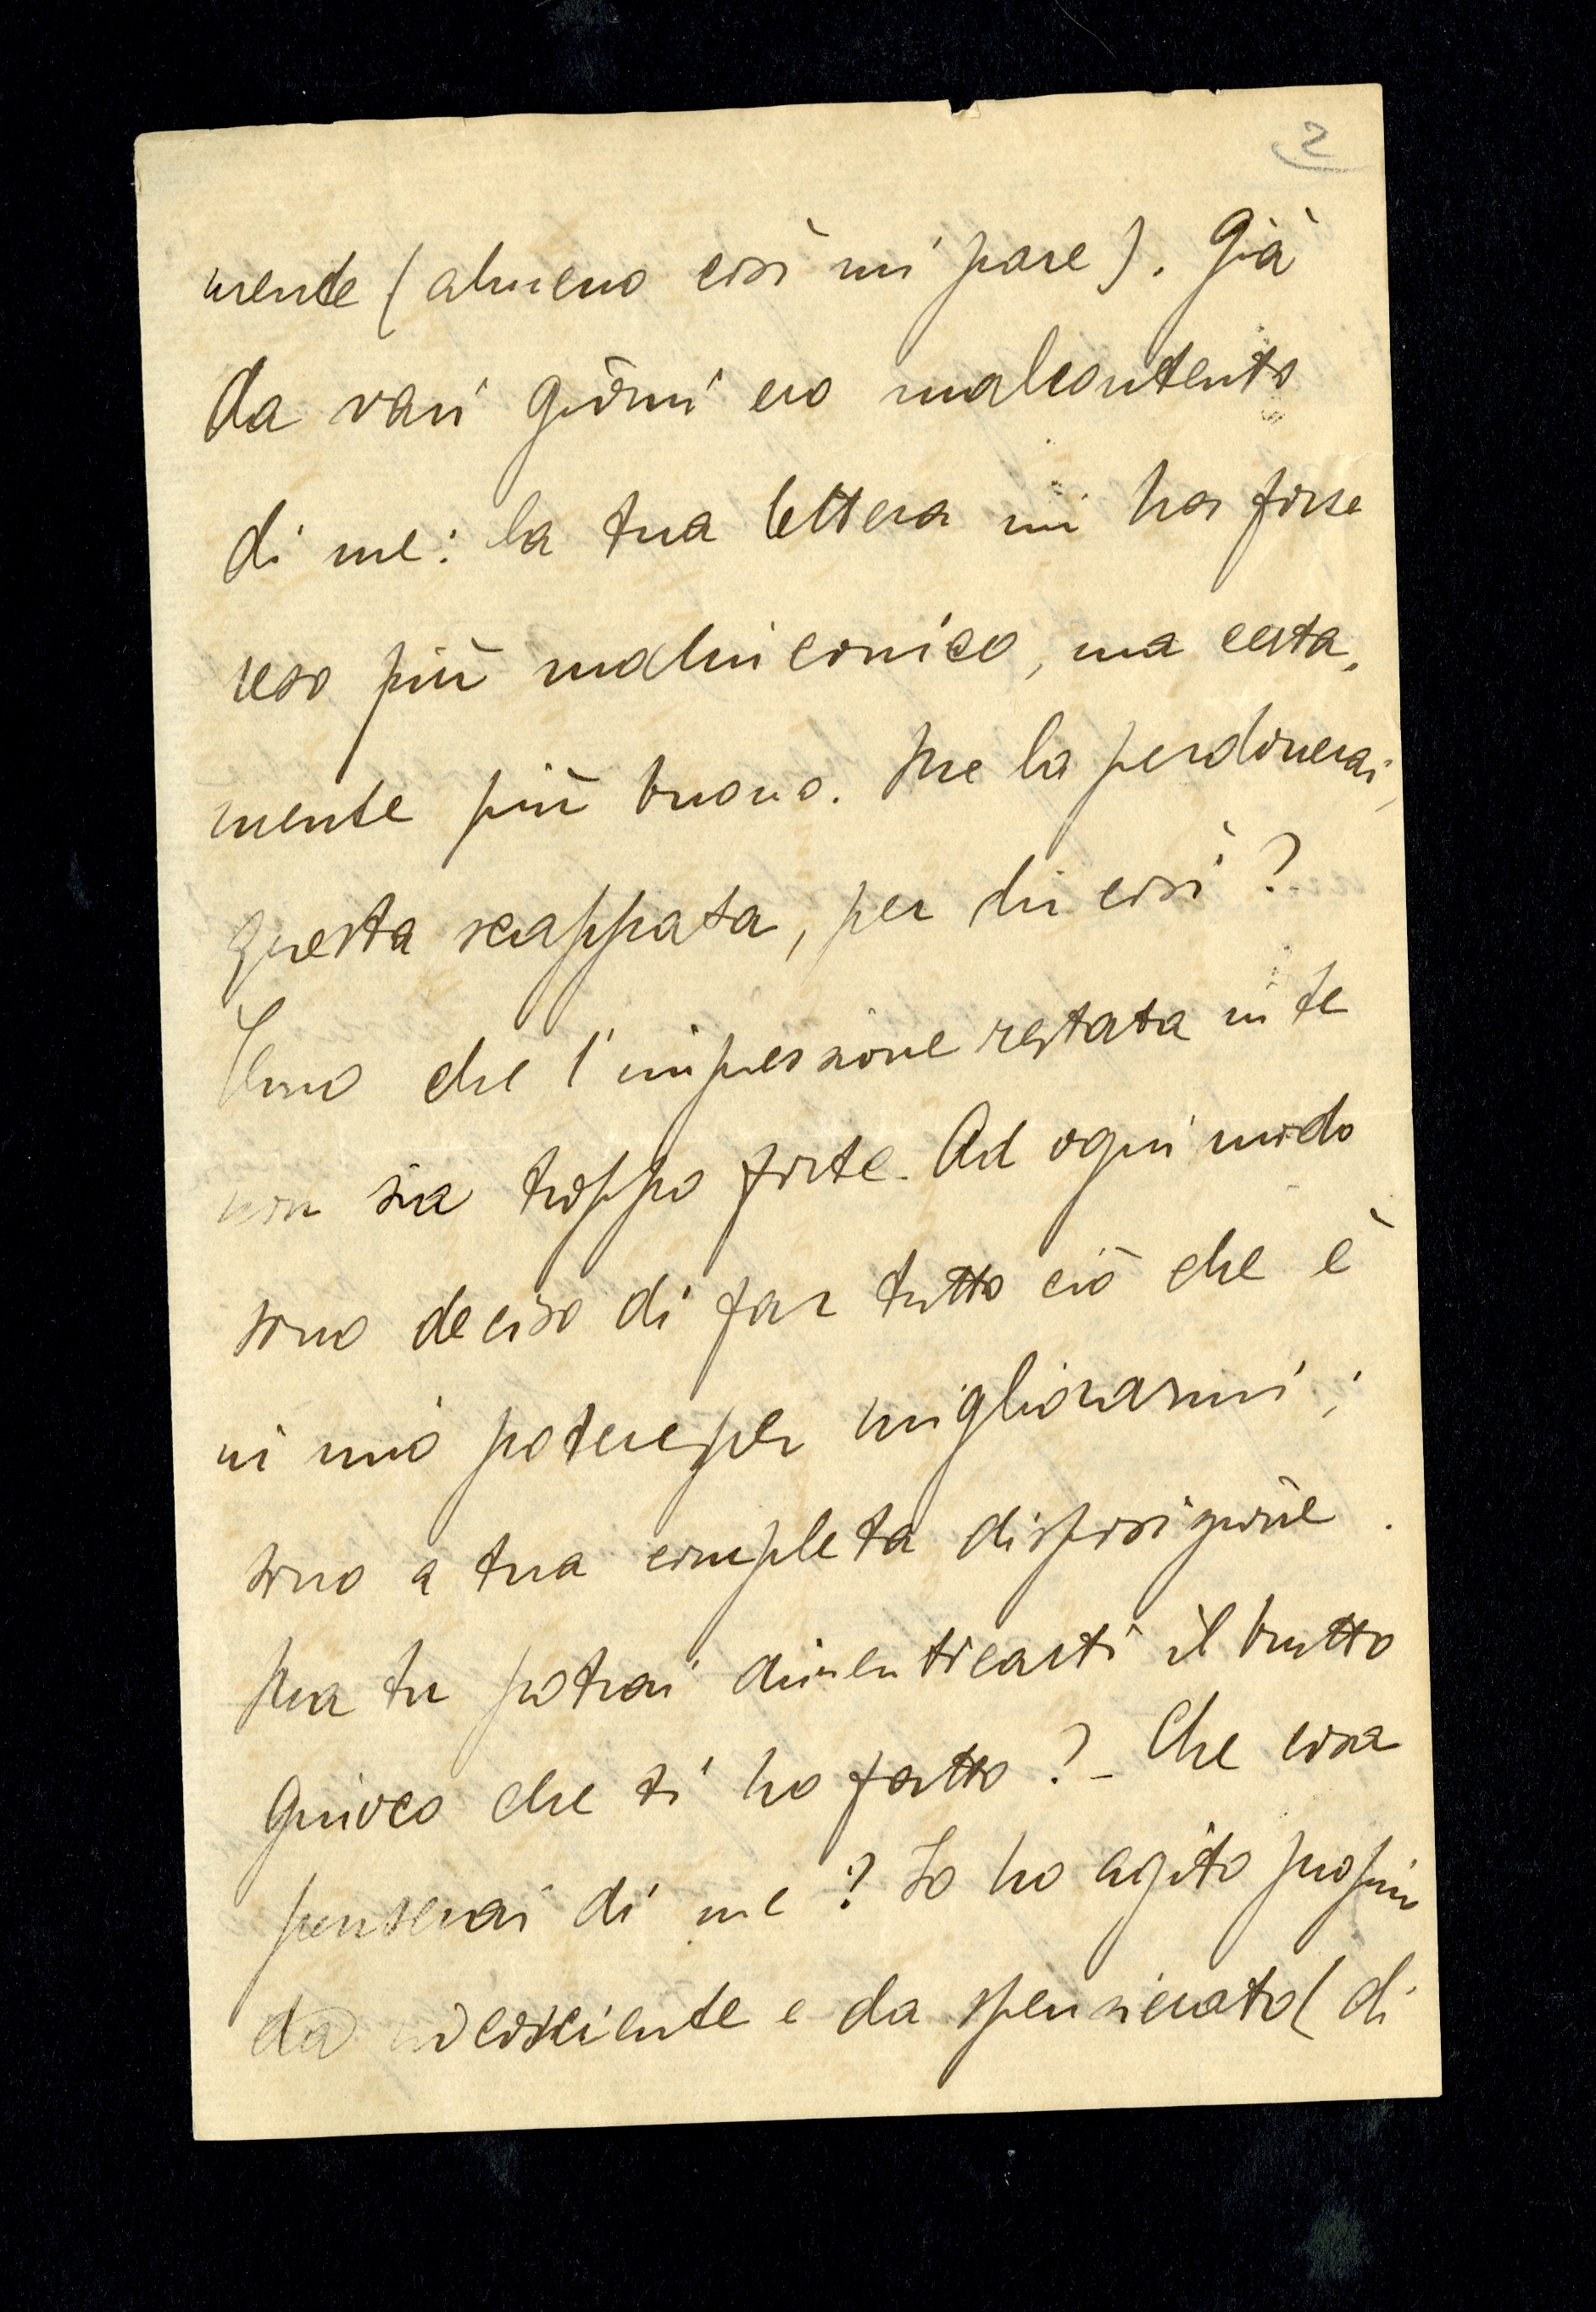 2
mente (almeno così mi pare). Già
da vari giorni ero malcontento
di me: la tua lettera mi ha forse
reso più malinconico, ma certa-
mente più buono. Me la perdonerai,
questa scappata, per dir così?
Temo che l'impressione restata in te
non sia troppo forte. Ad ogni modo
sono deciso di far tutto ciò che è
in mio potere per migliorarmi;
sono a tua completa disposizione.
Ma tu potrai dimenticarti il brutto
giuoco che ti ho fatto? - Che cosa
penserai di me? Io ho agito proprio
da incosciente e da spensierato (di